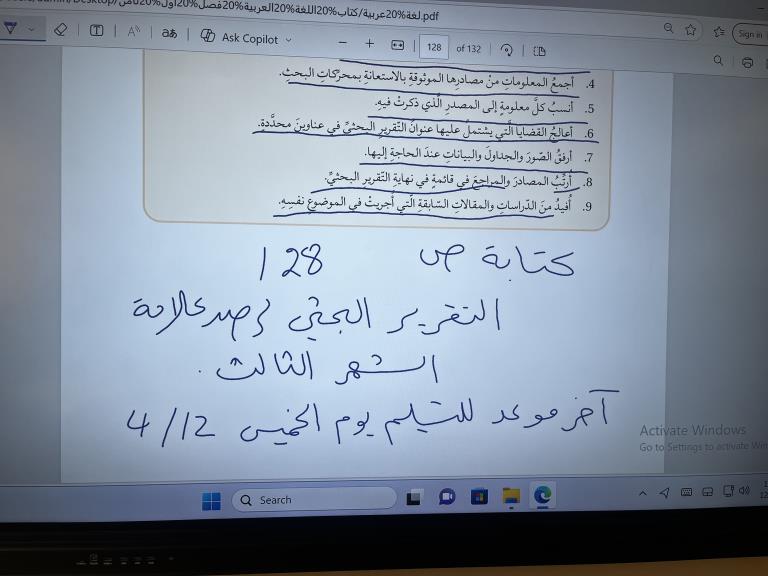 لغة%20عربية/كتاب%20اللغة%20العربية%20فصل%20اول%20ثامن.pdf
Sign in
Ask Copilot
128 of 132
4. أجمعُ المعلوماتِ منْ مصادرِها الموثوقةِ بالاستعانةِ بمحرّكاتِ البحثِ.
5. أنسبُ كلَّ معلومةٍ إلى المصدرِ الّذي ذكرتُ فيهِ.
6. أعالجُ القضايا الّتي يشتملُ عليها عنوانُ التّقريرِ البحثيِّ في عناوينَ محدَّدةٍ.
7. أرفقُ الصّورَ والجداولَ والبياناتِ عندَ الحاجةِ إليها.
8. أرتّبُ المصادرَ والمراجعَ في قائمةٍ في نهايةِ التّقريرِ البحثيِّ.
9. أُفيدُ منَ الدّراساتِ والمقالاتِ السّابقةِ الّتي أُجريتْ في الموضوعِ نفسِهِ.
كتابة ص 128
التقرير البحثي لرصد علامة
الشهر الثالث.
آخر موعد للتسليم يوم الخميس 4/12
Activate Windows
Go to Settings to activate Win
Search